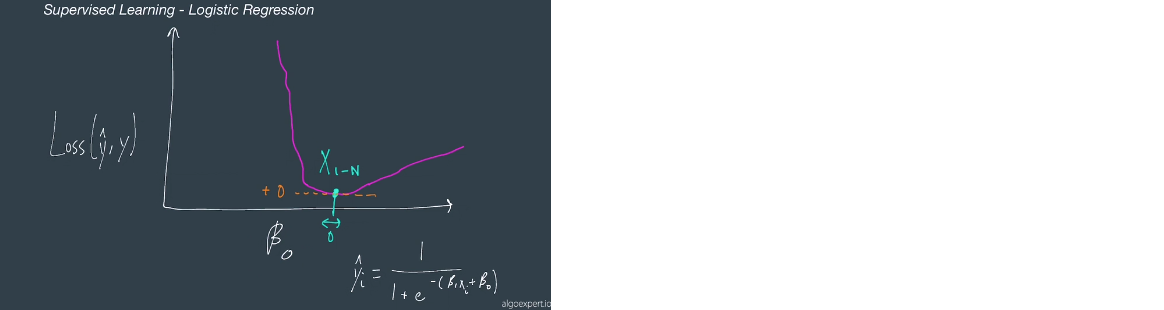 Supervised Learning - Logistic Regression
Loss(ŷ, y)
X₁₋N
+ 0
0
β₀
ŷᵢ = 1 / (1 + e^-(β₁xᵢ+β₀))
algoexpert.io